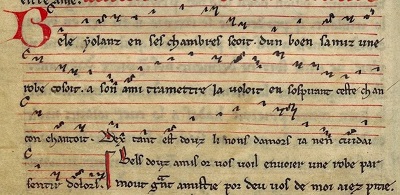 Bele yolanz en ses chambres seoit. dun boen samiz une
robe cosoit. a son ami tramettre la voloit en sospirant ceste chan
con chantoit. Dex tant est douz li nons damors ja nen cuidai
sentir dolors. Bels douz amis or vos voil envoier une robe par
mout grant amistie por deu vos de moi aiez pitie.